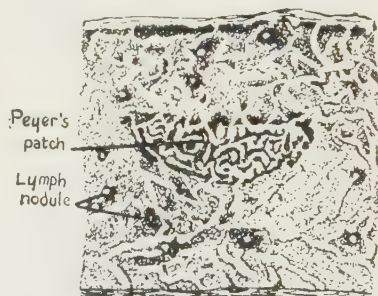 Peyer's
patch
Lymph
nodule